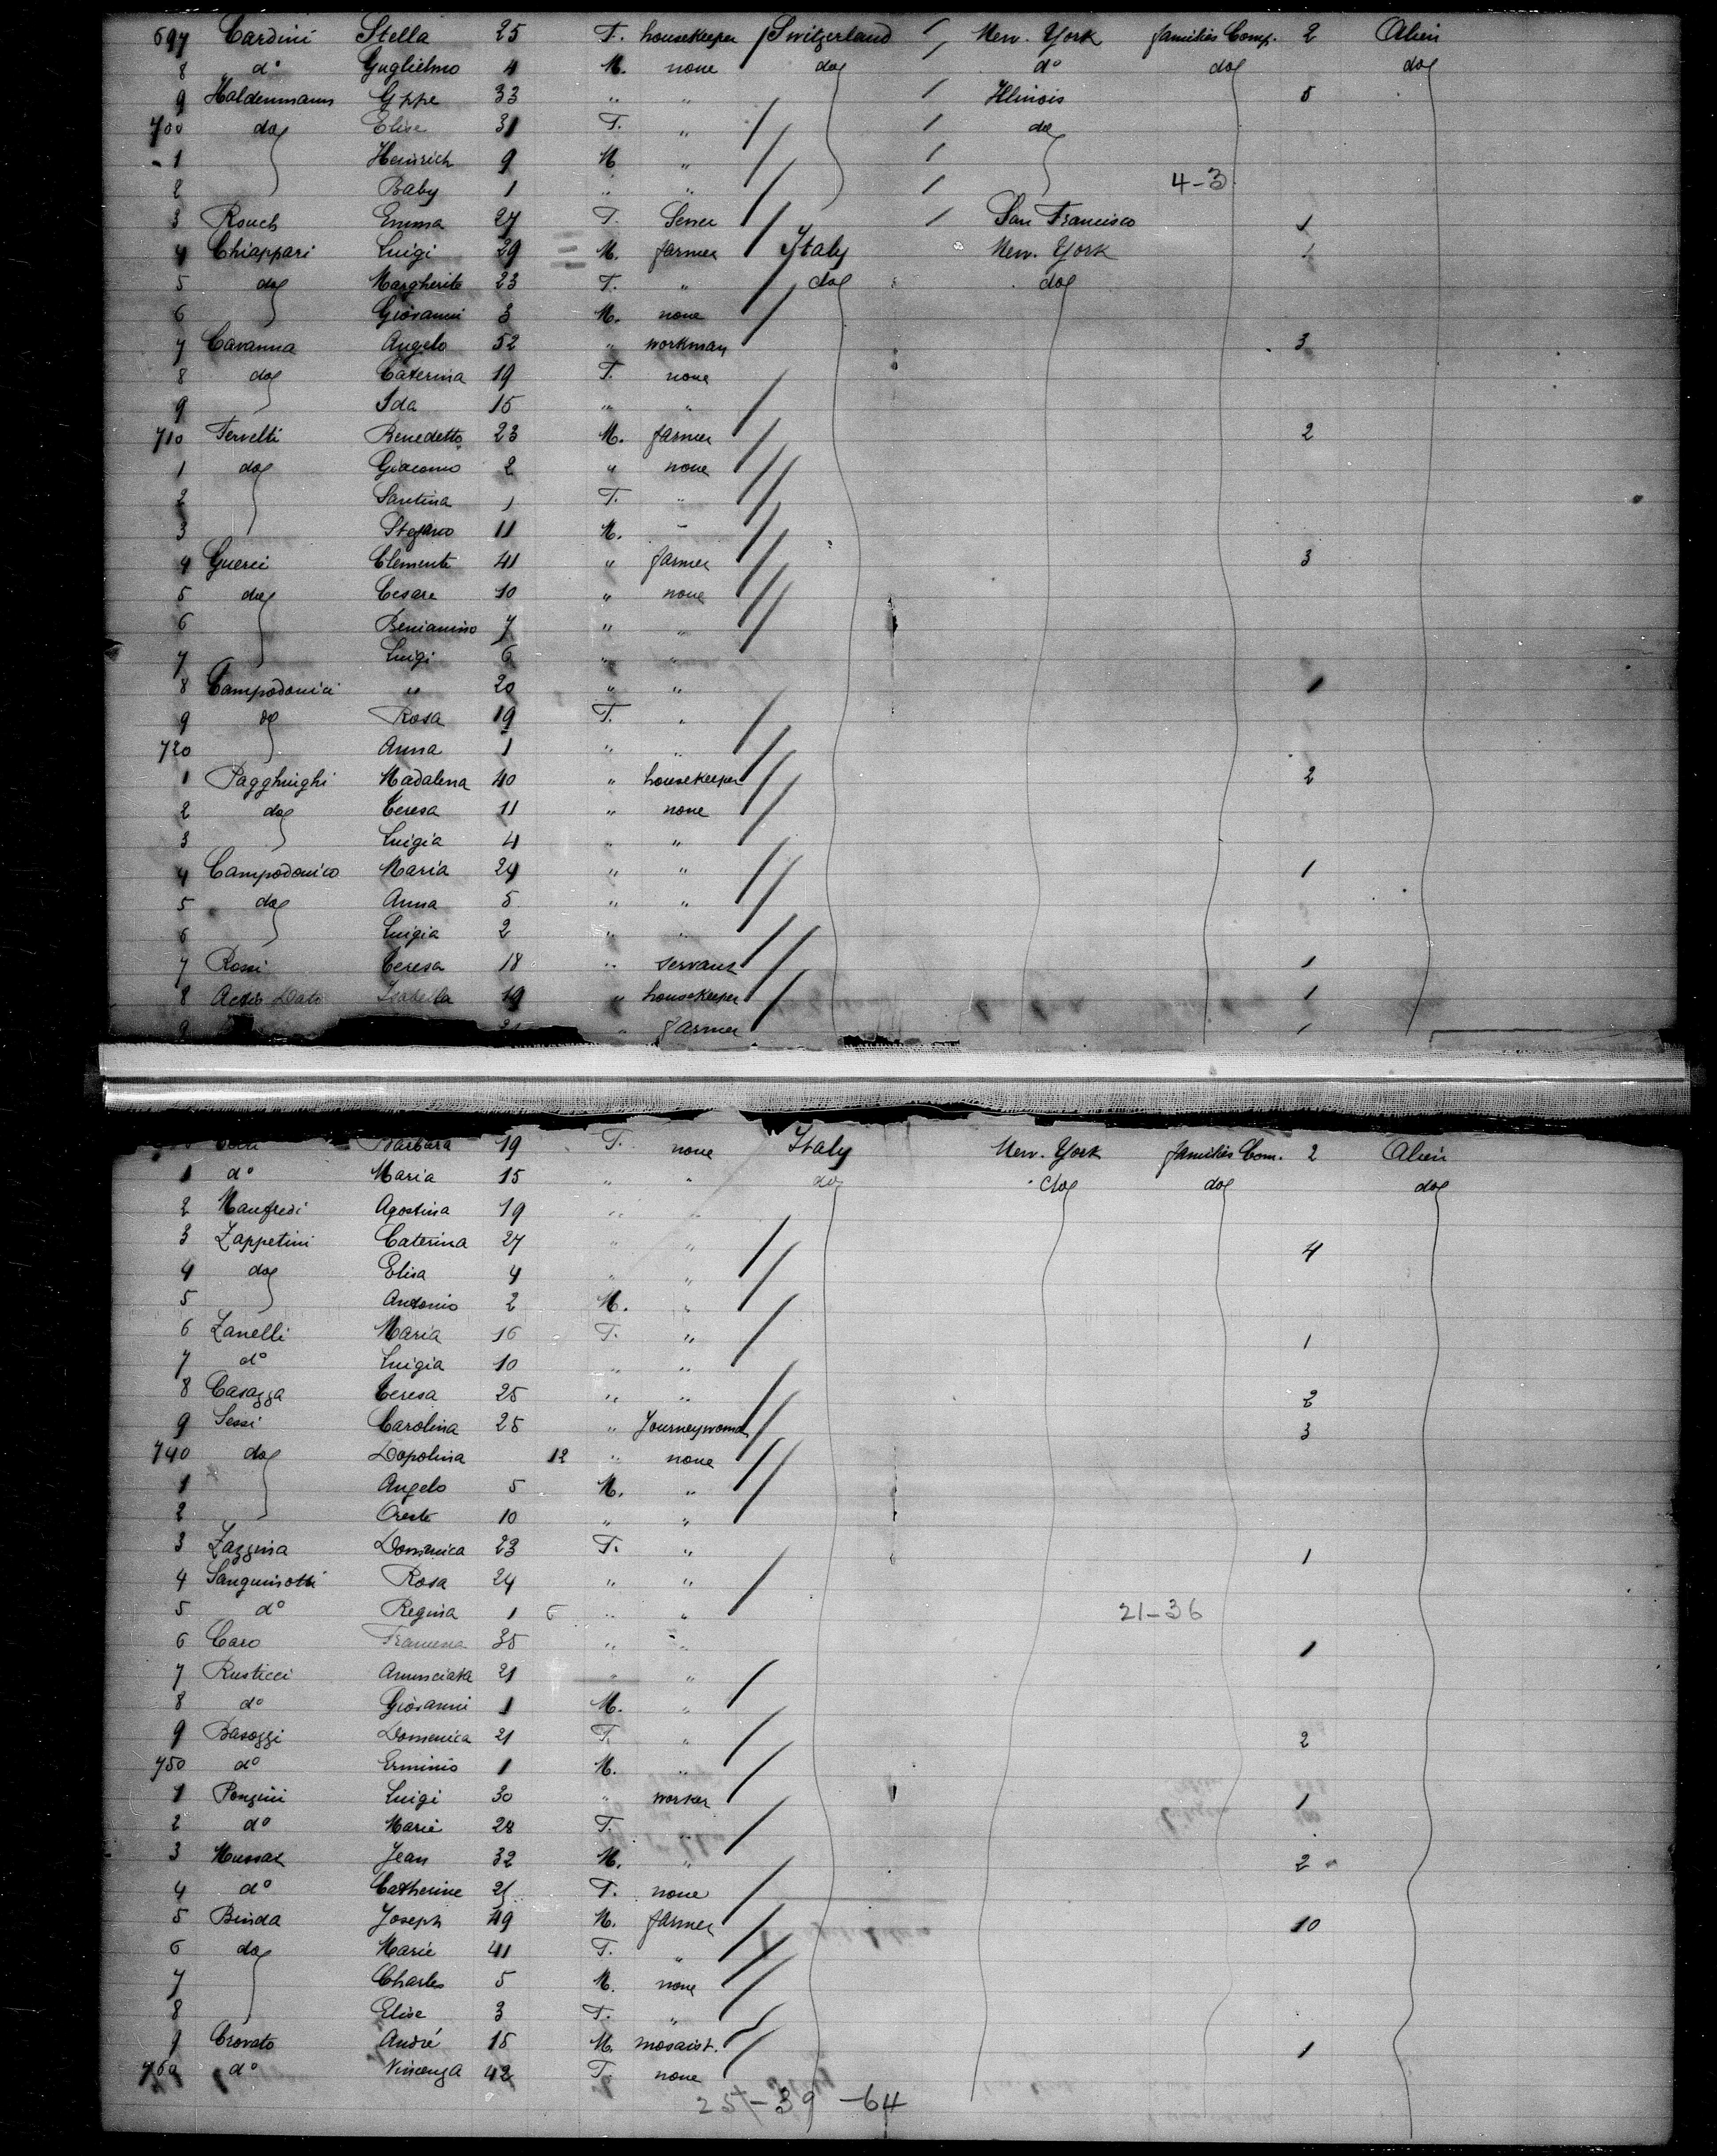 697 Cardini Stella 25 F. housekeeper Switzerland New. York families Comp. 2 Alien
8 do Guglielmo 4 M. none do do do do
9 Haldenmann Gppe 33 " " Illinois 5
700 do Elise 31 F. " do
1 Heinrich 9 M "
2 Baby 1 " " 4-3
3 Rouch Emma 27 F. San Francisco 1
4 Chiappari Luigi 29 M. farmer Italy New. York 1
5 do Margherita 23 F. " do do
6 Giovanni 3 M. none
7 Cavanna Angelo 52 " workman 3
8 do Caterina 19 F. none
9 Ida 15 " "
710 Ferretti Benedetto 23 M. farmer 2
1 do Giacomo 2 " none
2 Santina 1 F. "
3 Stefano 11 M. "
4 Guerci Clemente 41 " farmer 3
5 do Cesare 10 " none
6 Beniamino 7 " "
7 Luigi 6 " "
8 Campodonici " 20 " " 1
9 do Rosa 19 F. "
720 Anna 1 " "
1 Pagghinghi Madalena 40 " housekeeper 2
2 do Teresa 11 " none
3 Luigia 4 " "
4 Campodonico Maria 24 " " 1
5 do Anna 5 " "
6 Luigia 2 " "
7 Rossi Teresa 18 " servant 1
8 Actis Dato Isabella 19 " housekeeper 1
9 " farmer 1
Barbara 19 F. none Italy New. York families Com. 2 Alien
1 do Maria 15 " " do do do do
2 Manfredi Agostina 19 " "
3 Zappetini Caterina 27 " " 4
4 do Elisa 4 " "
5 Antonio 2 M. "
6 Zanelli Maria 16 F. " 1
7 do Luigia 10 " "
8 Casazza Teresa 25 " " 2
9 Sessi Carolina 25 " Journeywoman 3
740 do Dopolina 12 " none
1 Angelo 5 M. "
2 Oreste 10 " "
3 Zazzina Domenica 23 F. " 1
4 Sanguinotti Rosa 24 " "
5 do Regina 1 6 " " 21-36
6 Caro 35 " " 1
7 Rusticci Anunciata 21 " "
8 do Giovanni 1 M. "
9 Basozzi Domenica 21 F. " 2
750 do Erminio 1 M. "
1 Ponzini Luigi 30 " worker 1
2 do Marie 28 F. "
3 Mussat Jean 32 M. " 2
4 do Catherine 21 F. none
5 Binda Joseph 49 M. farmer 10
6 do Marie 41 F. "
7 Charles 5 M. none
8 Elise 3 F. "
9 Crovato André 15 M. mosaist. 1
760 do Vincenza 42 F. none
25-39-64